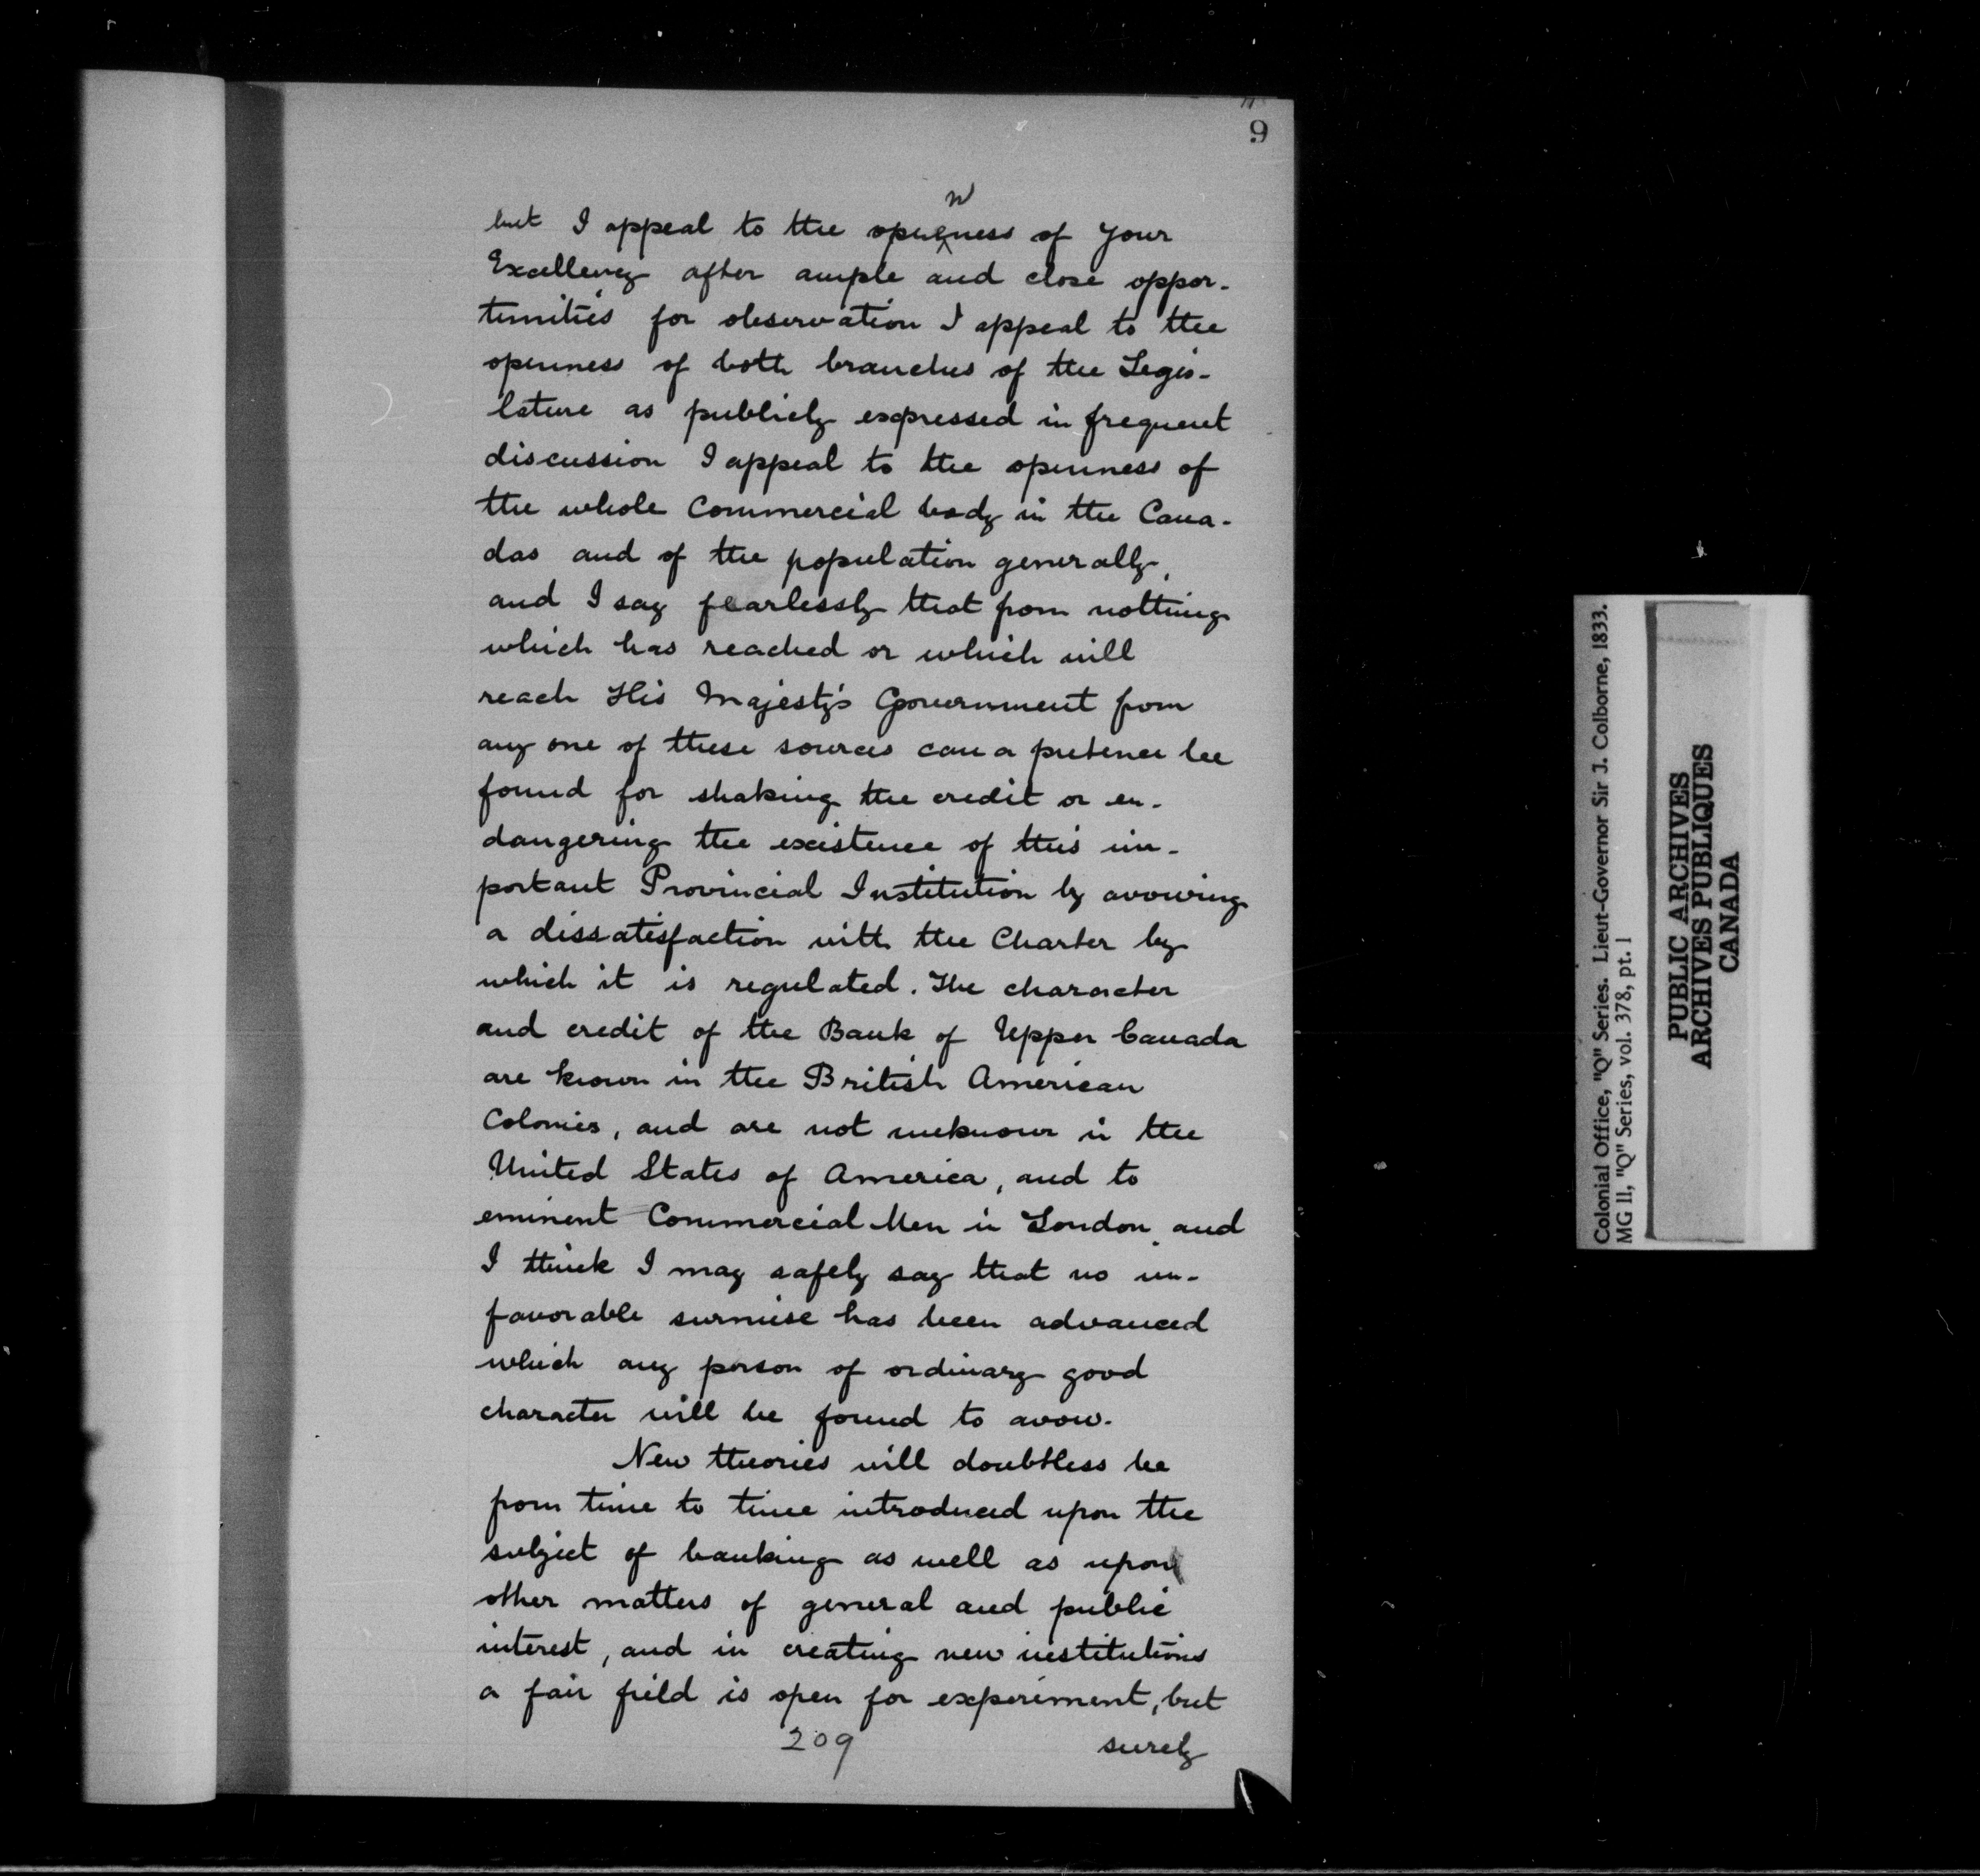 9
but I appeal to the openness of your
Excellency after ample and close oppor-
tunities for observation I appeal to the
openness of both branches of the Legis-
lature as publicly expressed in frequent
discussion I appeal to the openness of
the whole Commercial body in the Cana-
das and of the population generally,
and I say fearlessly that from nothing
which has reached or which will
reach His Majesty's Government from
any one of these sources can a pretence be
found for shaking the credit or en-
dangering the existence of this im-
portant Provincial Institution by avowing
a dissatisfaction with the Charter by
which it is regulated. The character
and credit of the Bank of Upper Canada
are known in the British American
Colonies, and are not unknown in the
United States of America, and to
eminent Commercial Men in London, and
I think I may safely say that no un-
favorable surmise has been advanced
which any person of ordinary good
character will be found to avow.
New theories will doubtless be
from time to time introduced upon the
subject of banking as well as upon
other matters of general and public
interest, and in creating new institutions
a fair field is open for experiment, but
209 surely
Colonial Office, "Q" Series. Lieut-Governor Sir J. Colborne, 1833.
MG 11, "Q" Series, vol. 378, pt. 1
PUBLIC ARCHIVES
ARCHIVES PUBLIQUES
CANADA